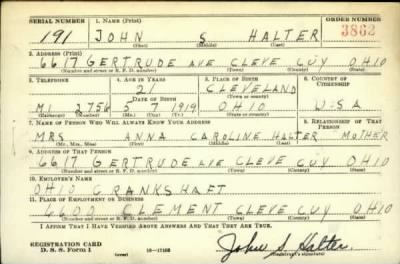 SERIAL NUMBER 1. NAME (Print) ORDER NUMBER
191 JOHN S HALTER 3862
(First) (Middle) (Last)
2. ADDRESS (Print)
6617 GERTRUDE AVE CLEVE CUY OHIO
(Number and street or R. F. D. number) (Town) (County) (State)
3. TELEPHONE 4. AGE IN YEARS 5. PLACE OF BIRTH 6. COUNTRY OF CITIZENSHIP
21 CLEVELAND
DATE OF BIRTH (Town or county)
MI 2756 5 7 1919 OHIO U.S.A
(Exchange) (Number) (Mo.) (Day) (Yr.) (State or country)
7. NAME OF PERSON WHO WILL ALWAYS KNOW YOUR ADDRESS 8. RELATIONSHIP OF THAT PERSON
MRS ANNA CAROLINE HALTER MOTHER
(Mr., Mrs., Miss) (First) (Middle) (Last)
9. ADDRESS OF THAT PERSON
6617 GERTRUDE AVE CLEVE CUY OHIO
(Number and street or R. F. D. number) (Town) (County) (State)
10. EMPLOYER'S NAME
OHIO CRANKSHAFT
11. PLACE OF EMPLOYMENT OR BUSINESS
6600 CLEMENT CLEVE CUY OHIO
(Number and street or R. F. D. number) (Town) (County) (State)
I AFFIRM THAT I HAVE VERIFIED ABOVE ANSWERS AND THAT THEY ARE TRUE.
REGISTRATION CARD
D. S. S. Form 1 (over) 16—17105 John S. Halter
(Registrant's signature)